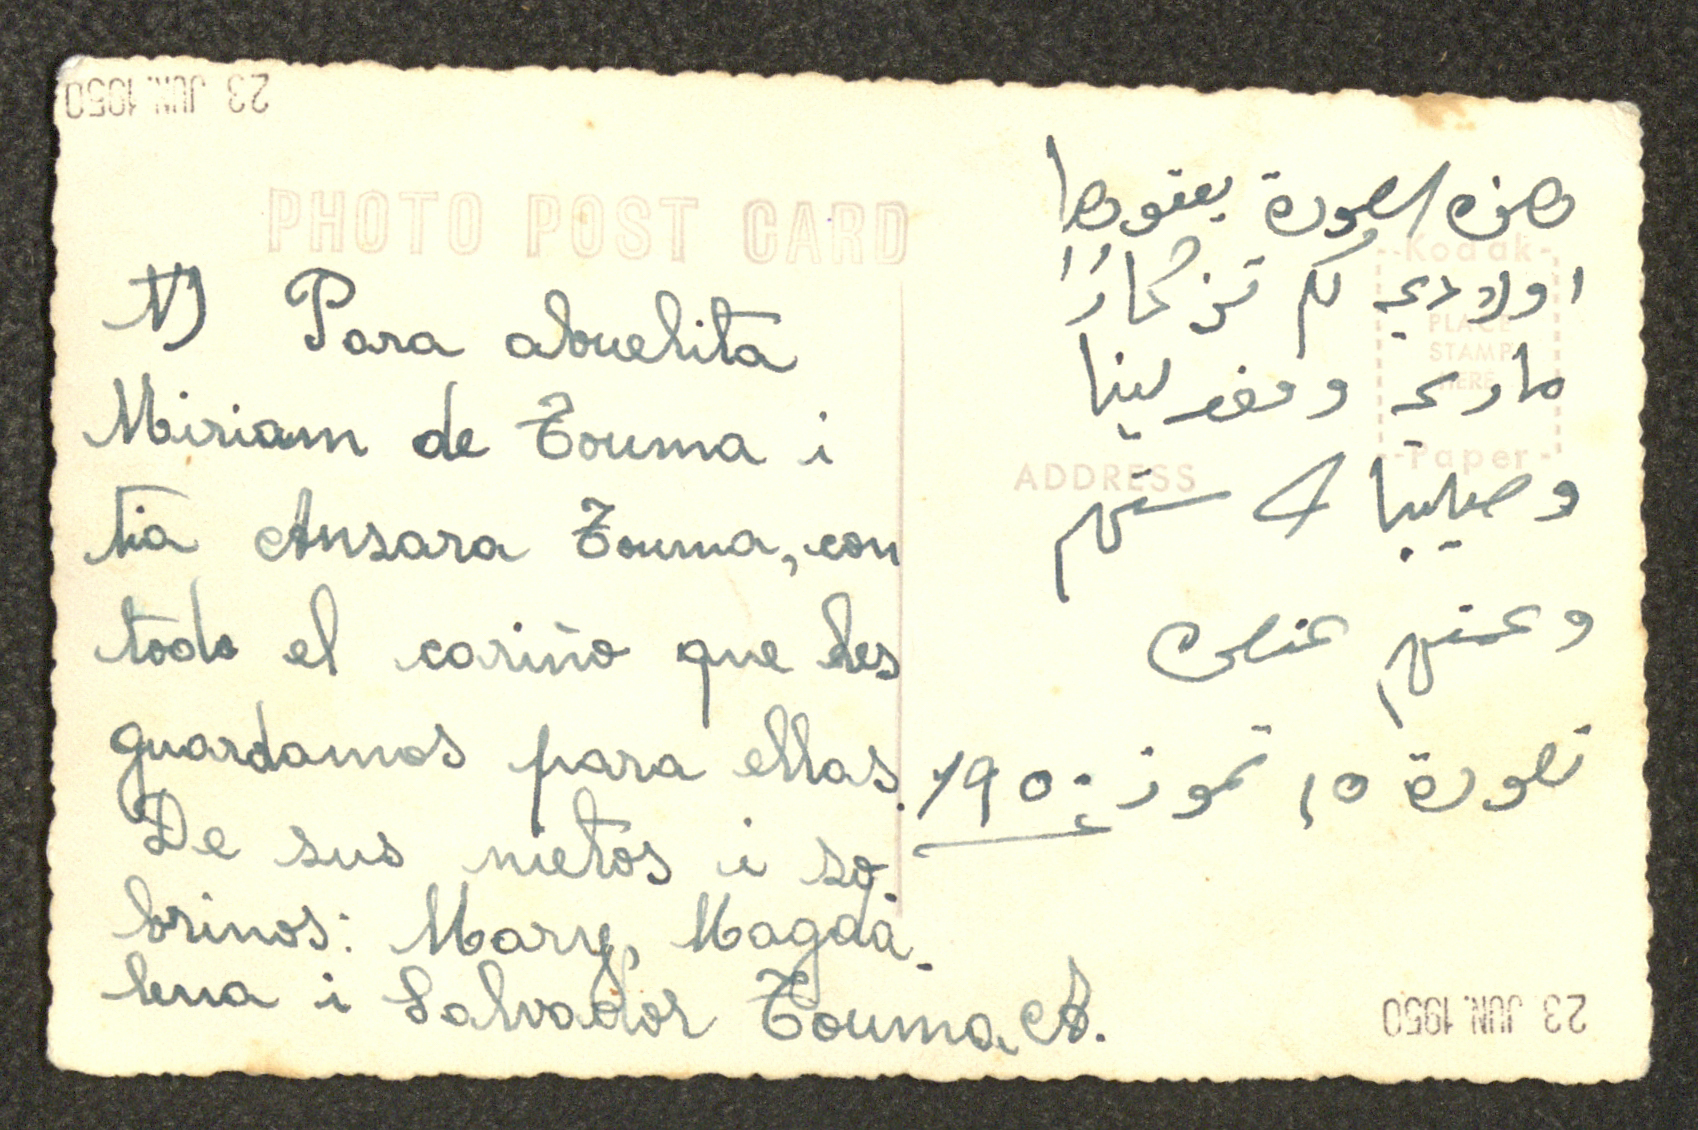 23 JUN. 1950
PHOTO POST CARD
1) Para abuelita
Miriam de Touma i
tia Ansara Touma, con
todo el cariño que les
guardamos para ellas.
De sus nietos i so-
brinos: Mary, Magda-
lena i Salvador Touma A.
هذه الصورة يقدموها
اولادي لكم تذكارًا
ماري و مغدلينا
و صليبا لستهم
و عمتهم
تصورة ١٥ تموز ١٩٥٠
Kodak
PLACE
STAMP
HERE
Paper
ADDRESS
23 JUN. 1950